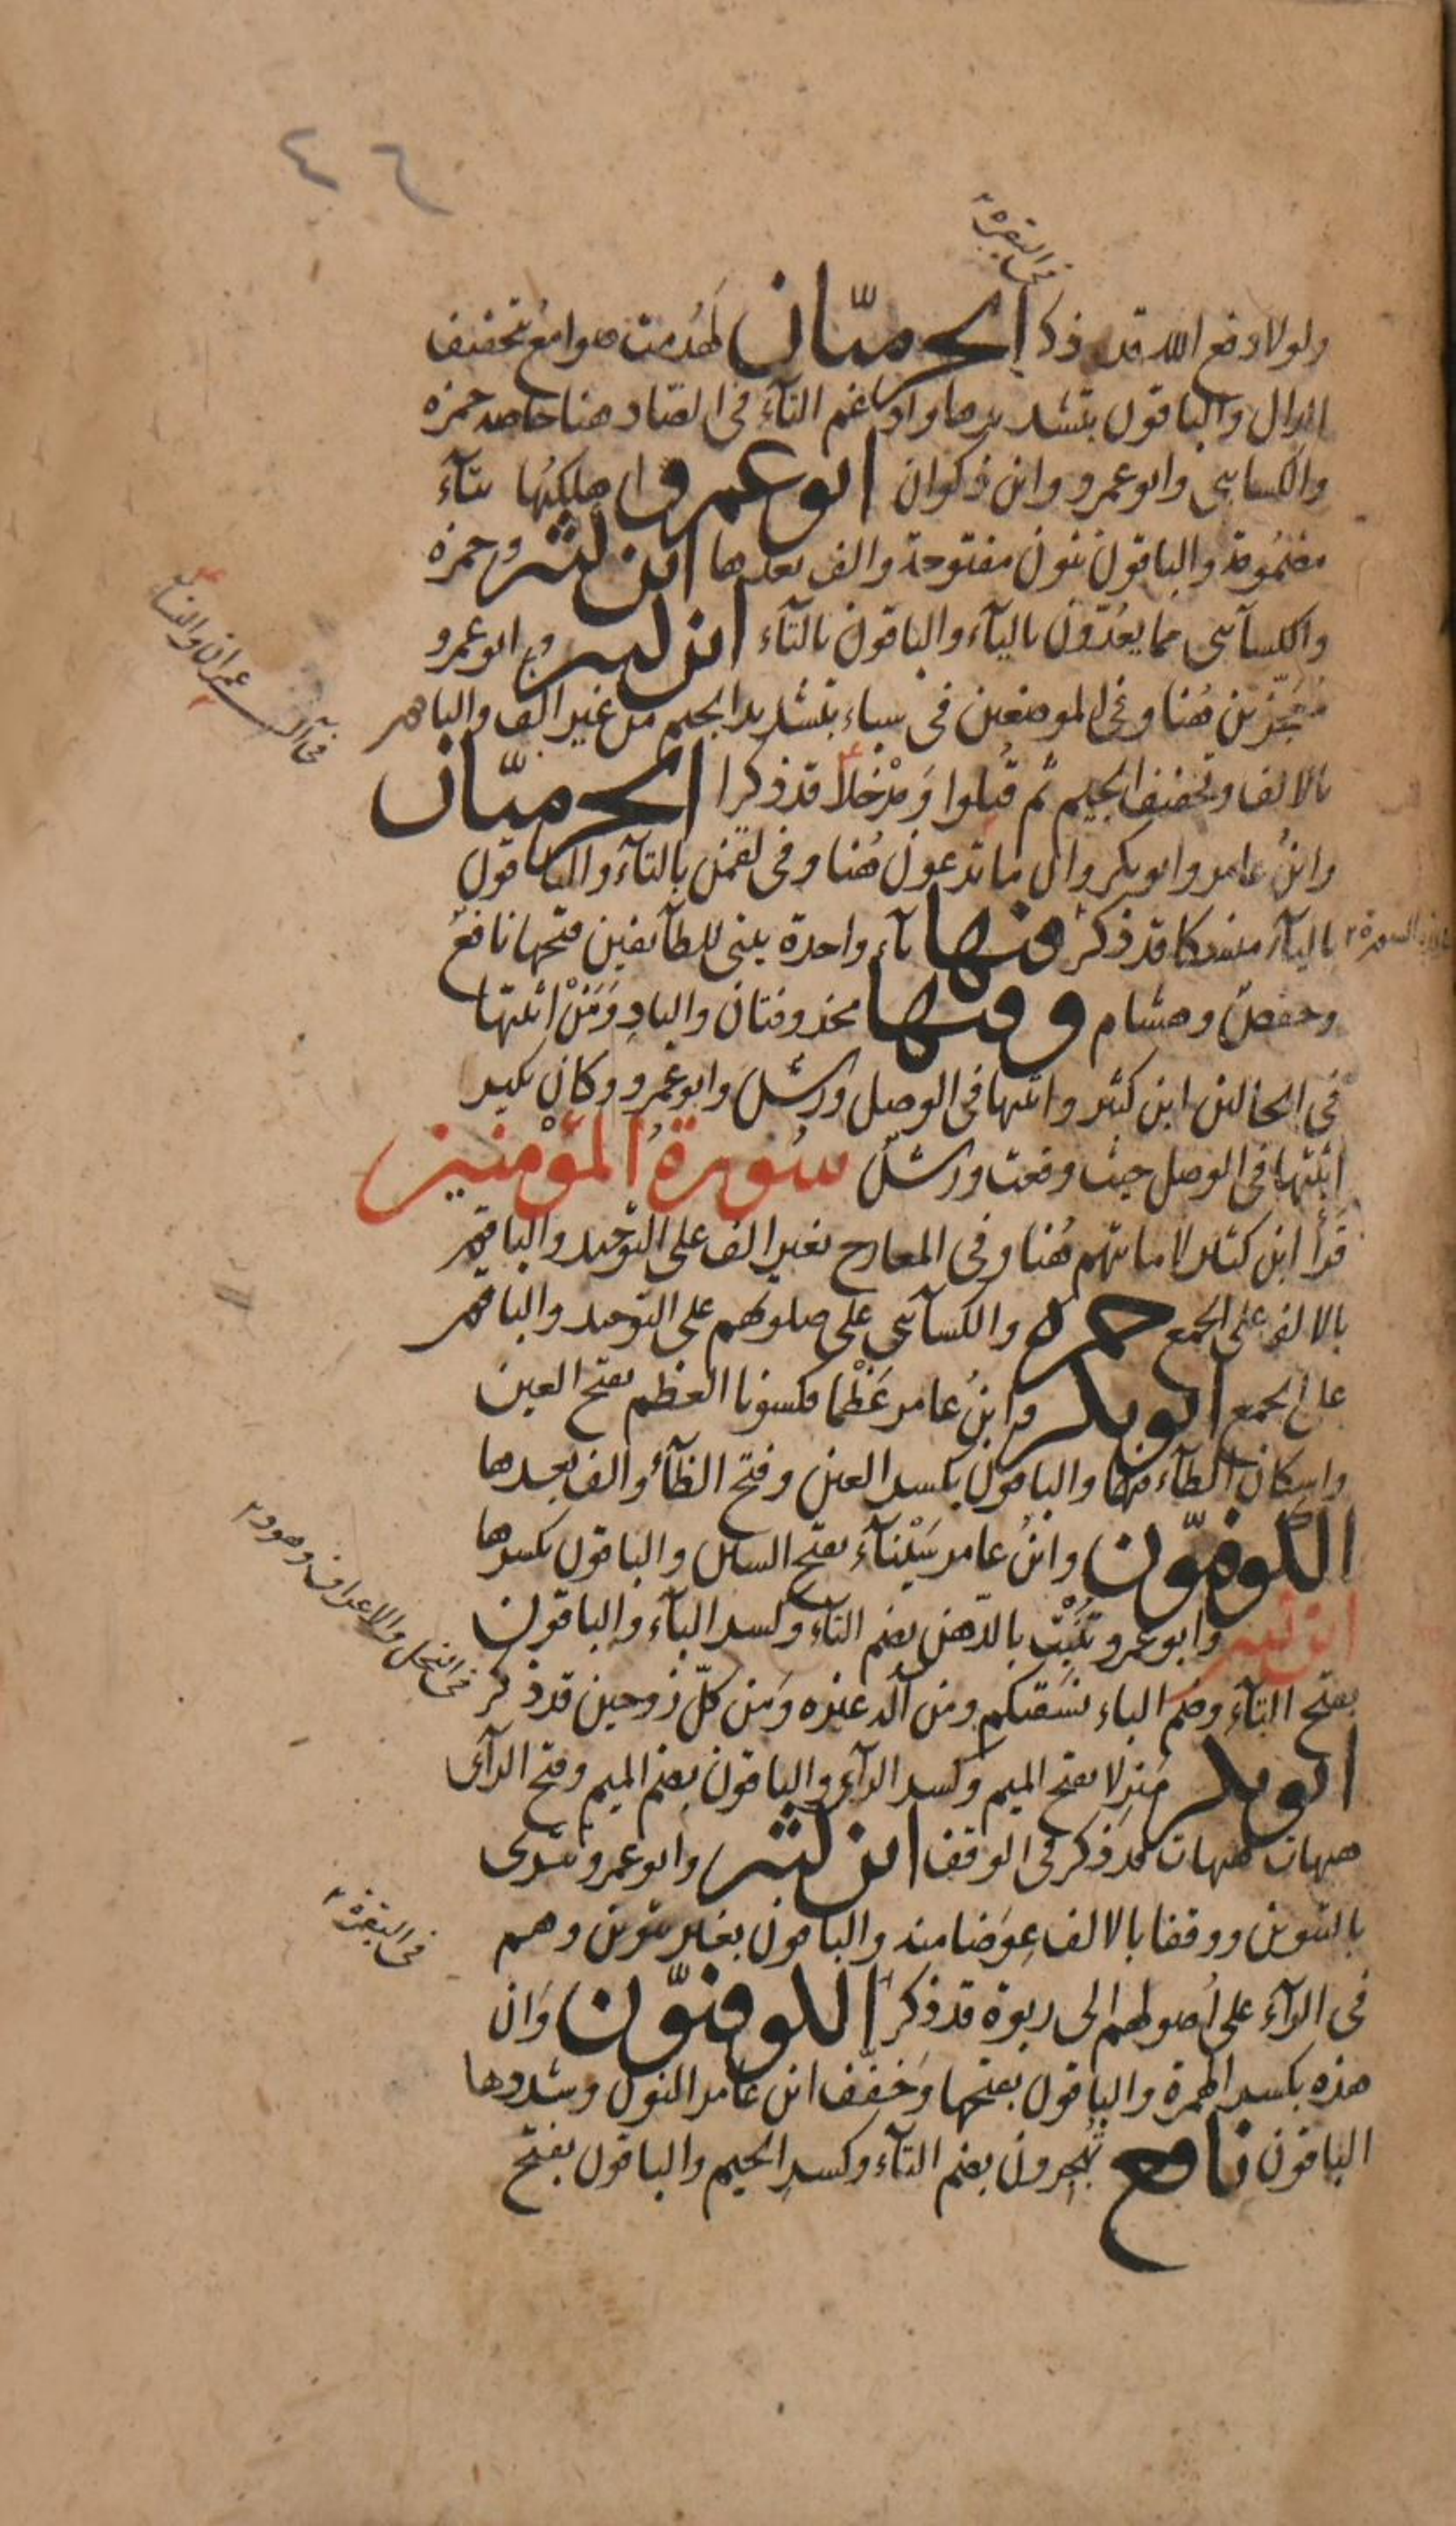 ٤٦
فى البقرة
ولولا دفع الله قد ذكر الحرميّان لهُدمت صوامعُ بتخفيف
الدال والباقون بتشديدها وادغم التآء فى الصّاد هنا حمزه
والكسايى وابو عمرو وابن ذكوان ابو عمرو اهلكتُها بتآء
مضمُومة والباقون بنون مفتوحة والف بعدها ابن كثير وحمزه
والكسآيى مما يعُدّون باليآء والباقون بالتآء ابن كثير وابو عمرو
مُعَجّزين هُنا وفى الموضعين فى سباء بتشديد الجيم من غير الف والباقون
فى آل عمران والنساء
بالالف وتخفيف الجيم ثم قُتلوا وَمدْخلاً قد ذكرا الحرميّان
وابنُ عامر وابو بكر وان ما تدعون هُنا وفى لقمن بالتآء والباقون
باليآء منسكا قد ذكر فيها يآء واحدة بيتى للطآئفين فتحها نافعٌ
وحفصٌ وهشام وفيها محذوفتان والبادِ وَمَنْ اثبتها
فى الحالين ابن كثير واثبتها فى الوصل ورشٌ وابو عمرو وكان نكير
اثبتها فى الوصل حيث وقعت ورشٌ سُورةُ المؤْمنين
قرأ ابن كثير لاماناتهم هُنا وفى المعارج بغير الف على التوحيد والباقون
بالالف على الجمع حمزه والكسآئى على صلوتهم على التوحيد والباقون
على الجمع ابو بكر وابنُ عامر عَظْما فكسونا العظم بفتح العين
واسكان الظآء فيهما والباقون بكسر العين وفتح الظآء والف بعدها
الكوفيّون وابنُ عامر سَيْنآء بفتح السين والباقون بكسرها
ابن كثير وابو عمرو تُنْبِت بالدّهن بضم التآء وكسر البآء والباقون
بفتح التآء وضم الباء نسقيكم ومن اله غيره وَمن كلّ زوجين قد ذكر
فى النحل والاعراف وهود
ابو بكر مَنزِلا بفتح الميم وكسر الزآى والباقون بضم الميم وفتح الزآى
هيهات هيهات قد ذكر فى الوقف ابن كثير وابو عمرو تترى
بالتنوين ووقفا بالالف عِوَضا منه والباقون بغير تنوين وهم
فى البقرة
فى الرآء على اُصولهم الى ربوة قد ذكر الكوفيّون وَان
هذه بكسر الهمزة والباقون بفتحها وَخفّف ابن عامر النون وشددها
الباقون نافع تُهْجِرون بضم التآء وكسر الجيم والباقون بفتح